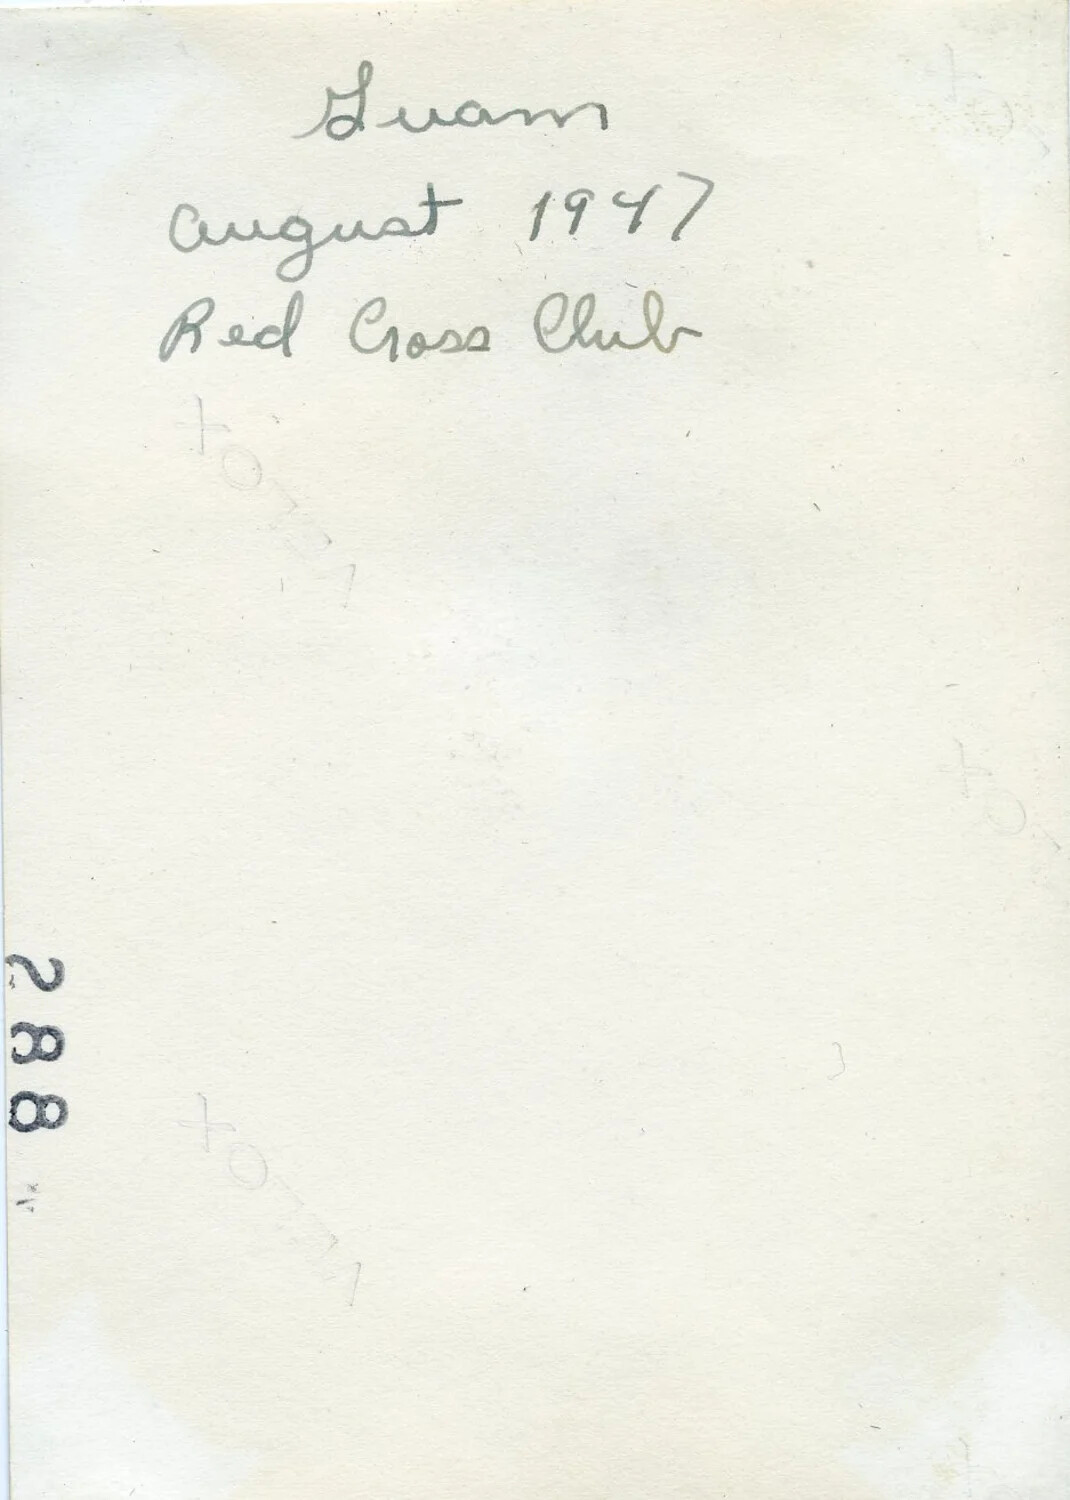 Guam
August 1947
Red Cross Club
288